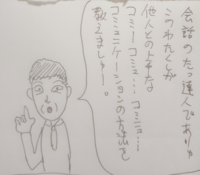 会話のたつ達人でありゃ
このわたくしが
他人との上手な
コミー!コミュ…コミニョ…
コミュニケーションの方法を
教えましょー。